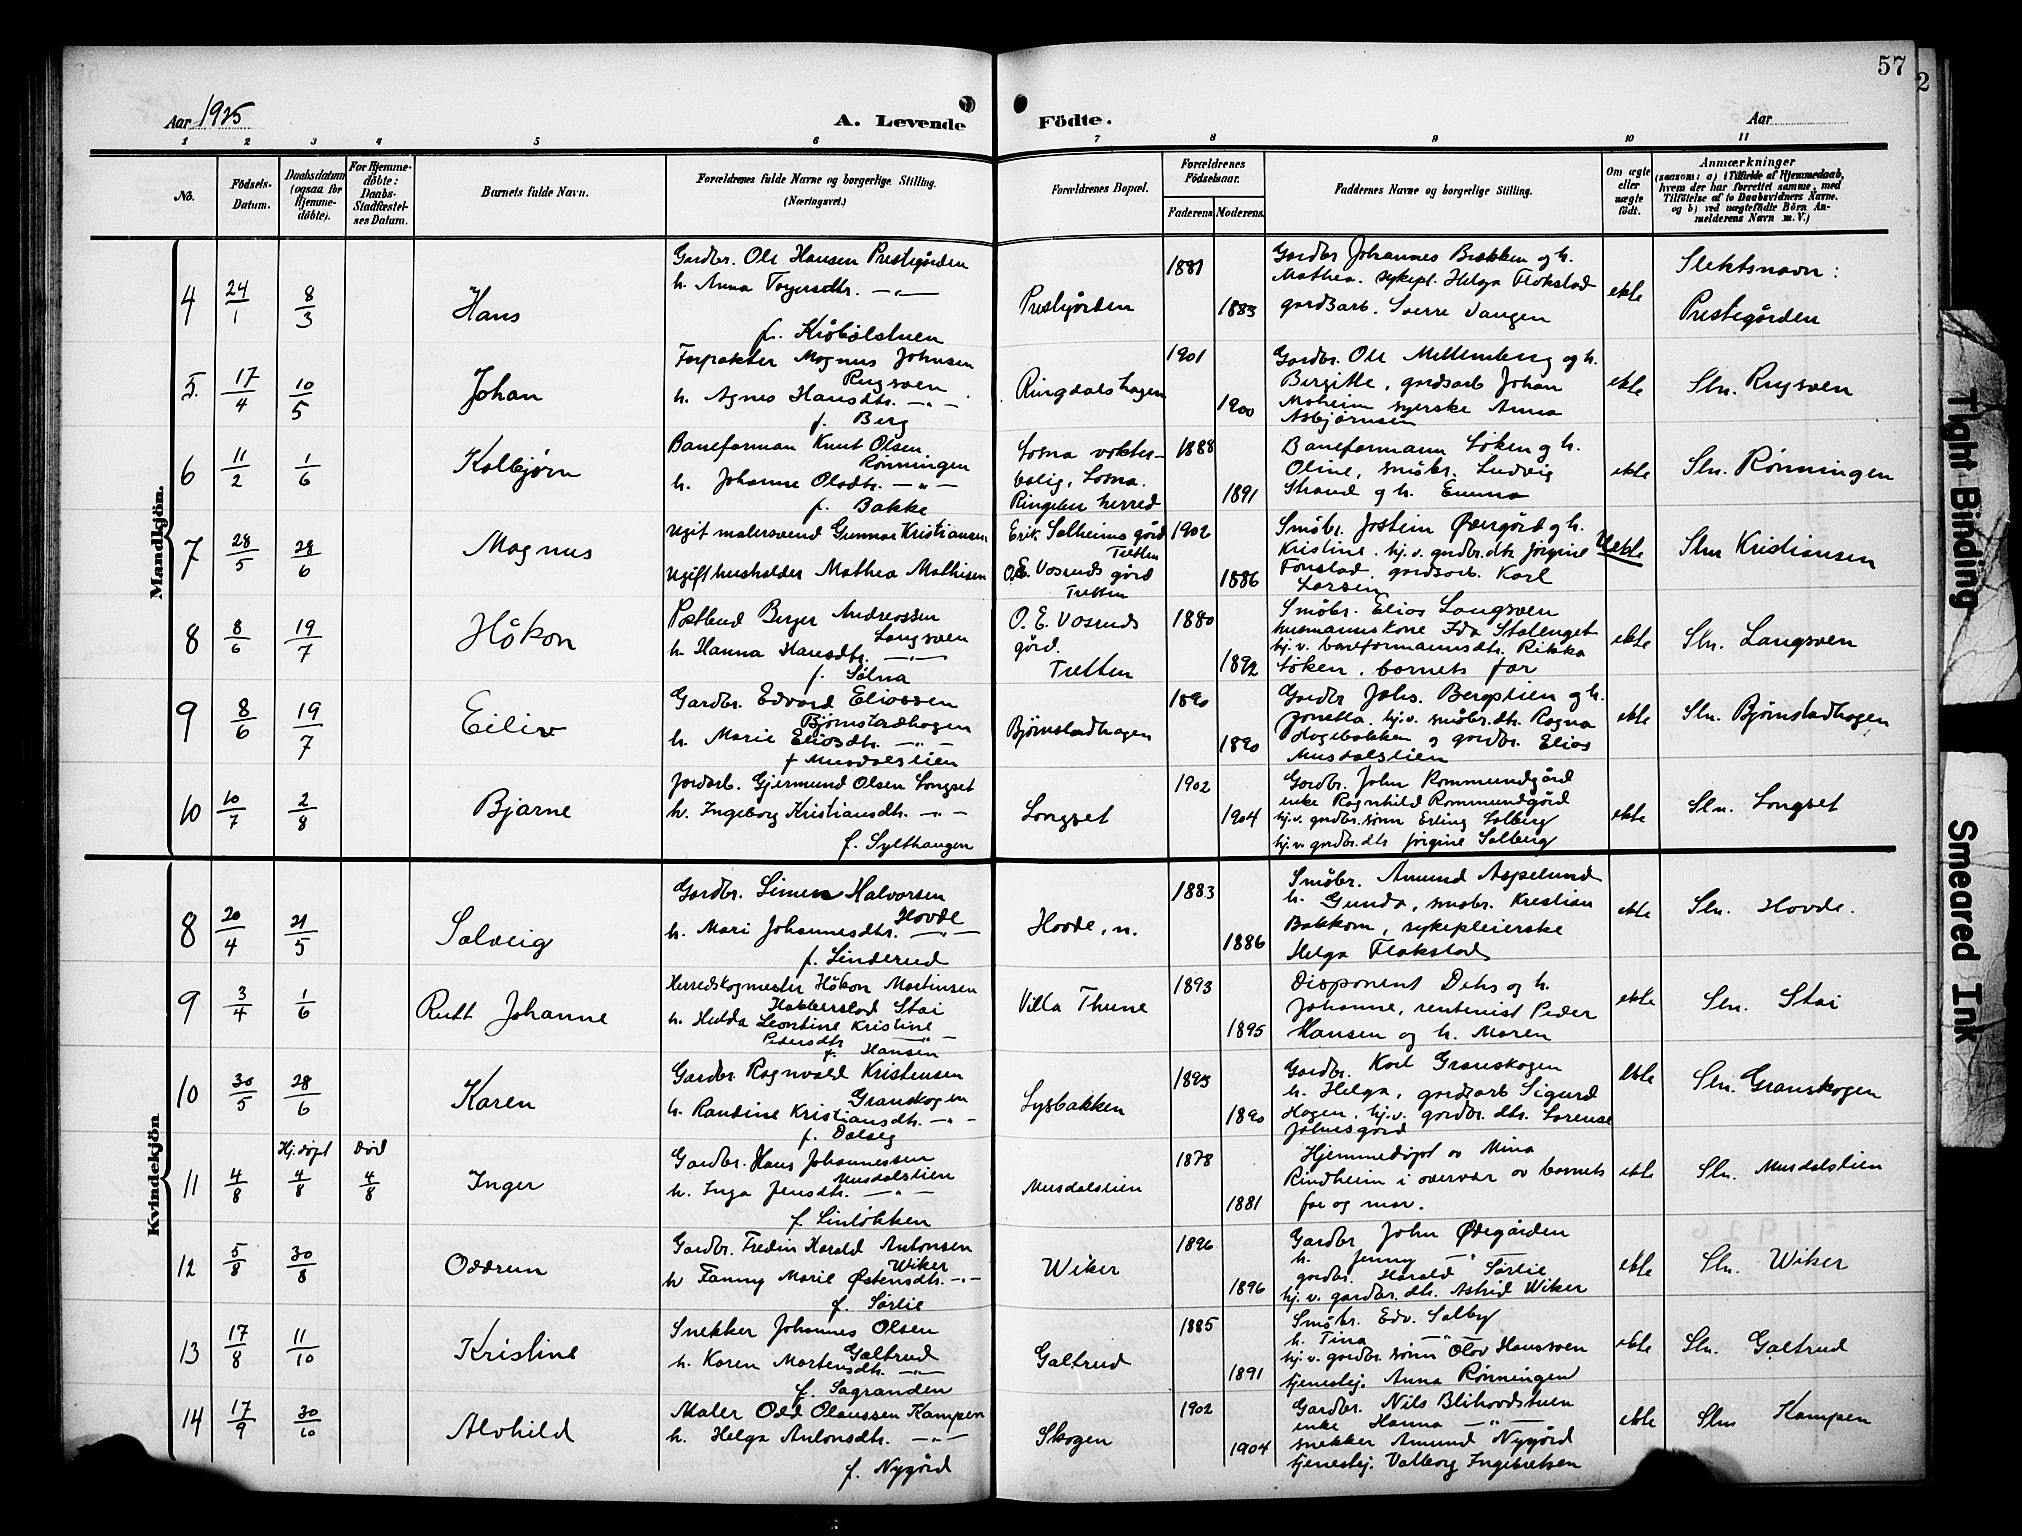 57
2
Aar 1925
A. Levende Födte.
Aar
1 2 3 4 5 6 7 8 9 10 11
No.
Födsels-Datum.
Daabsdatum (ogsaa for Hjemmedöbte).
For Hjemmedöbte: Daabs-Stadfæstelses Datum.
Barnets fulde Navn.
Forældrenes fulde Navne og borgerlige Stilling. (Næringsvei.)
Forældrenes Bopæl.
Forældrenes Födselsaar.
Faderens. Moderens.
Faddernes Navne og borgerlige Stilling.
Om ægte eller uægte født.
Anmærkninger
(saasom: a) i Tilfælde af Hjemmedaab, hvem der har forrettet samme, med Tilföielse af to Daabsvidners Navne, og b) ved uægtefødte Börn Anmelderens Navn m. V.)
Mandkjön.
4 24/1 8/3 Hans
Gardbr. Ole Hansen Prestegården
h. Anna Torgersdtr. —"—
f. Kråbølstuen
Prestgården
1881 1883
Gardbr Johannes Brekken og h.
Mathea. sykepl. Helga Flakstad
gardsarb. Sverre Vangen
ekte
Slektsnavn:
Prestegården
5. 17/4 10/5 Johan
Forpakter Magnus Johnsen
Rugsveen
h. Agnes Hansdtr. —"—
f. Berg
Ringdalshagen
1901 1900
Gardbr. Ole Mellemberg og h.
Birgitte, gardsarb Johan
Moheim syerske Anna
Asbjørnsen
ekte
Sln. Rugsveen
6 11/2 1/6 Kolbjørn
Baneforman Knut Olsen
Rønningen
h. Johanne Olsdtr. —"—
f. Bakke
Losna vokter-
bolig, Losna.
Ringebu herred
1888 1891
Baneformann Løken og h.
Oline, småbr. Ludvig
Strand og h. Emma
ekte
Sln. Rønningen
7 28/5 28/6 Magnus
Ugift malersvend Gunnar Kristiansen
Ugift husholder Mathea Mathisen
Erik Solheims gård
Tretten
O.E. Vasruds gård
Tretten
1902 1886
Småbr. Jostein Øvergård og h.
Kristine. hj.v. gardbr.dtr Jørgine
Fonstad, gardsarb. Karl
Larsen
Uekte
Sln Kristiansen
8 8/6 19/7 Håkon
Postbud Berger Andreassen
Langsveen
h. Hanna Hansdtr. —"—
f. Sølna
O. E. Vasruds
gård.
Tretten
1880 1892
Småbr. Elias Langsveen
husmannskone Ida Stalenget
hj.v. baneformannsdtr. Rikka
Løken, barnets far
ekte
Sln. Langsveen
9 8/6 19/7 Eiliv
Gardbr. Edvard Eliassen
Bjørnstadhagen
h. Marie Eliasdtr. —"—
f Musdalslien
Bjørnstadhagen
1890 1890
Gardbr Johs. Bergslien og h.
Jonetta, hj.v. småbr.dtr. Ragna
Hagebakken og gardbr. Elias
Musdalslien
ekte
Sln. Bjørnstadhagen
10 10/7 2/8 Bjarne
Jordarb. Gjermund Olsen Longset
h. Ingeborg Kristiansdtr. —"—
f. Sylthaugen
Longset
1902 1904
Gardbr. John Rommundgård
enke Ragnhild Rommundgård
hj.v. gardbr. sønn Erling Solberg
hj.v. gardbr. dtr Jørgine Solberg
ekte
Sln. Longset
Kvindekjön
8 20/4 21/5 Solveig
Gardbr. Simen Halvorsen
Hovde
h. Mari Johannesdtr. —"—
f. Linderud
Hovde, n.
1883 1886
Småbr. Amund Aspelund
h. Gunda, småbr. Kristian
Bakkom, sykepleierske
Helga Flakstad
ekte
Sln. Hovde.
9 3/4 1/6 Ruth Johanne
Herredskogmester Håkon Martinsen
Habberstad Stai
h. Hulda Leontine Kristine
Pedersdtr —"—
f. Hansen
Villa Thune
1893 1895
Disponent Dehs og h.
Johanne, rentenist Peder
Hansen og h. Maren
ekte
Sln. Stai
10 30/5 28/6 Karen
Gardbr Ragnvald Kristensen
Granskogen
h. Randine Kristiansdtr. —"—
f. Dalseg
Lysbakken
1893 1890
Gardbr. Karl Granskogen
h. Helga, gardsarb Sigurd
Hagen, hj.v. gardbr. dtr. Lorense
Johnsgård
ekte
Sln. Granskogen
11 4/8 Hj.døpt 4/8 Død 4/8 Inger
Gardbr. Hans Johannessen
Musdalslien
h. Inga Jensdtr. —"—
f. Linløkken
Musdalslien
1878 1881
Hjemmedøpt av Mina
Rindheim i overvær av barnets
far og mor.
ekte
Sln. Musdalslien
12 5/8 30/8 Oddrun
Gardbr. Fredin Harald Antonsen
Wiker
h Fanny Marie Østensdtr. —"—
f. Sørlie
Wiker
1896 1896
Gardbr John Ødegården
h. Jenny —"—
gardbr. Harald Sørlie
hj.v. gardbr. dtr. Astrid Wiker
ekte
Sln. Wiker
13 17/8 11/10 Kristine
Snekker Johannes Olsen
Galtrud
h. Karen Mortensdtr. —"—
f. Sagranden
Galtrud
1885 1891
Småbr. Edv. Solby
h. Tina —"—
hj.v. gardbr. sønn Olav Hansveen
tjenestej. Anna Rønningen
ekte
Sln. Galtrud
14 17/9 30/10 Alvhild
Maler Odd Olaussen Kampen
h. Helga Antonsdtr. —"—
f. Nygård
Skogen
1902 1904
Gardbr. Nils Blihovdstuen
enke Hanna —"—
snekker Amund Nygård
tjenestej. Valborg Ingebretsen
ekte
Sln Kampen
Tight Binding
Smeared Ink